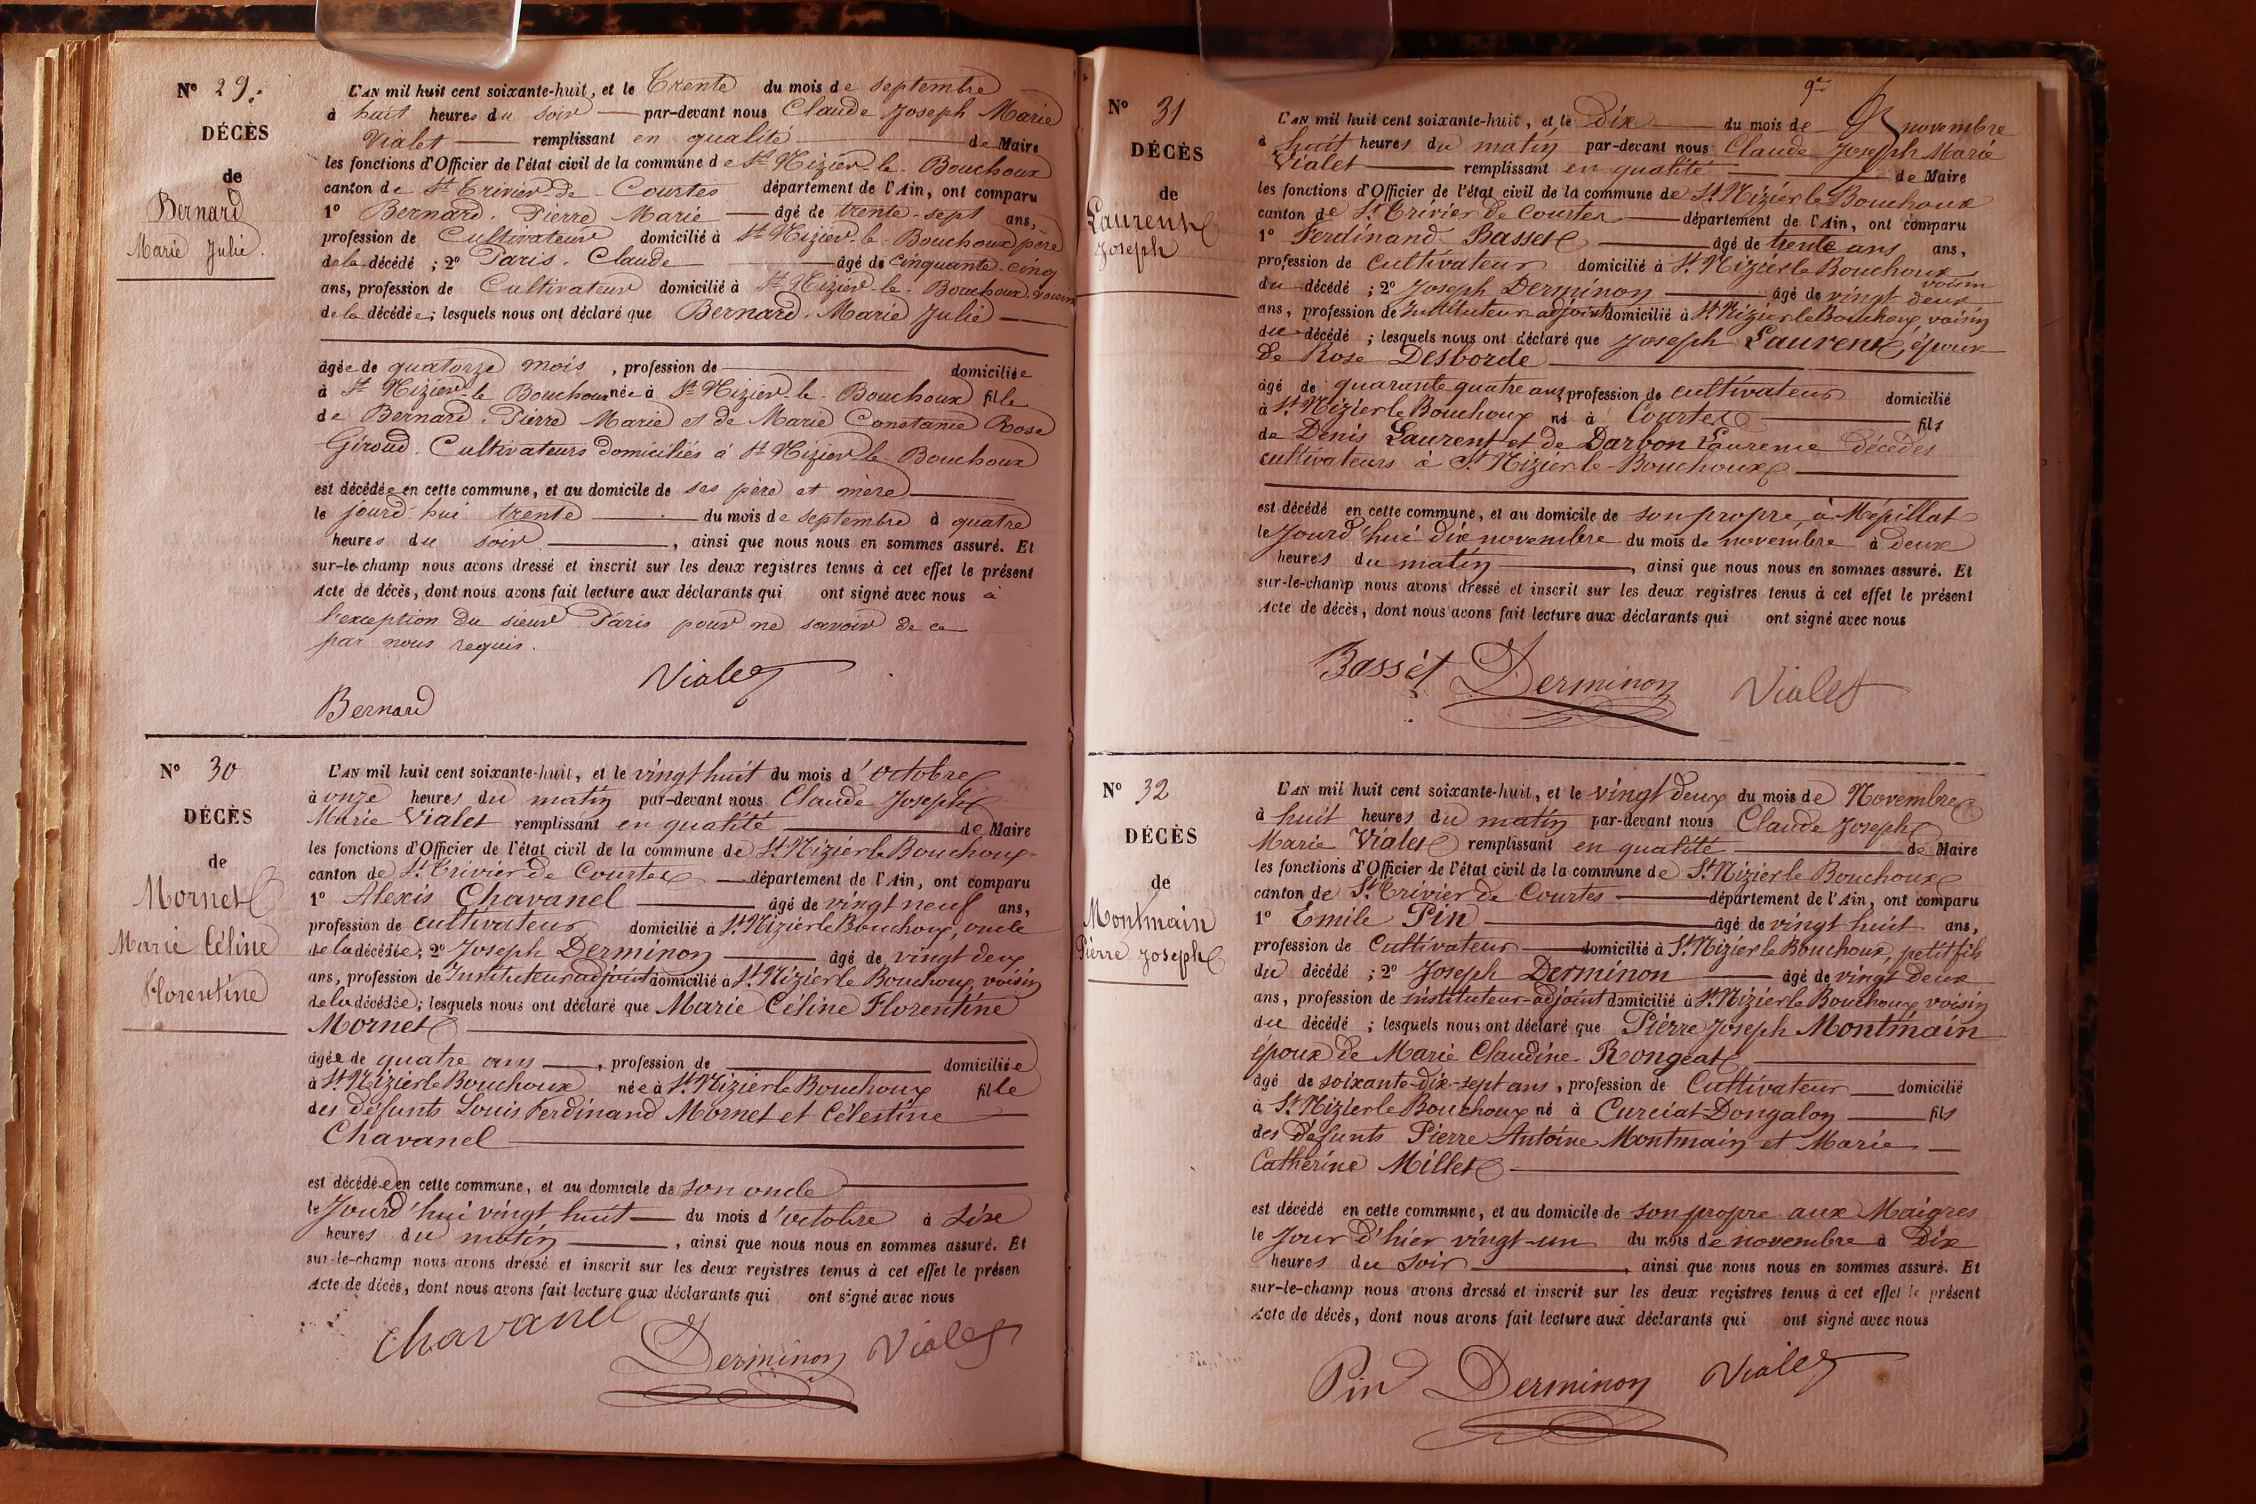 N° 29.
DÉCÈS
de
Bernard
Marie Julie.
L'AN mil huit cent soixante-huit, et le Trente du mois de septembre
à huit heures du soir par-devant nous Claude Joseph Marie
Vialet remplissant en qualité de Maire
les fonctions d'Officier de l'état civil de la commune de St Nizier-le-Bouchoux
canton de St Trivier de Courtes département de l'Ain, ont comparu
1° Bernard. Pierre Marie âgé de trente-sept ans,
profession de Cultivateur domicilié à St Nizier-le-Bouchoux père
de la décédé ; 2° Paris. Claude âgé de cinquante-cinq
ans, profession de Cultivateur domicilié à St Nizier-le-Bouchoux voisin
de la décédée ; lesquels nous ont déclaré que Bernard. Marie Julie
âgée de quatorze mois, profession de domiciliée
à St Nizier-le Bouchoux née à St Nizier-le-Bouchoux fille
de Bernard. Pierre Marie et de Marie Constance Rose
Giroud. Cultivateurs domiciliés à St Nizier-le-Bouchoux
est décédée en cette commune, et au domicile de ses père et mère
le jourd'hui trente du mois de septembre à quatre
heures du soir, ainsi que nous nous en sommes assuré. Et
sur-le-champ nous avons dressé et inscrit sur les deux registres tenus à cet effet le présent
Acte de décès, dont nous avons fait lecture aux déclarants qui ont signé avec nous à
l'exception du sieur Paris pour ne savoir de ce
par nous requis.
Vialet
Bernard
N° 30
DÉCÈS
de
Mornet
Marie Céline
Florentine
L'AN mil huit cent soixante-huit, et le vingt huit du mois d'octobre
à onze heures du matin par-devant nous Claude Joseph
Marie Vialet remplissant en qualité de Maire
les fonctions d'Officier de l'état civil de la commune de St Nizier le Bouchoux
canton de St Trivier de Courtes département de l'Ain, ont comparu
1° Alexis Chavanel âgé de vingt neuf ans,
profession de cultivateur domicilié à St Nizier le Bouchoux, oncle
de la décédée ; 2° Joseph Derminon âgé de vingt deux
ans, profession de Instituteur adjoint domicilié à St Nizier le Bouchoux, voisin
de la décédée ; lesquels nous ont déclaré que Marie Céline Florentine
Mornet
âgée de quatre ans, profession de domiciliée
à St Nizier le Bouchoux née à St Nizier le Bouchoux fille
des défunts Louis Ferdinand Mornet et Célestine
Chavanel
est décédée en cette commune, et au domicile de son oncle
le Jourd'hui vingt huit du mois d'octobre à Sixe
heures du matin, ainsi que nous nous en sommes assuré. Et
sur-le-champ nous avons dressé et inscrit sur les deux registres tenus à cet effet le présen
Acte de décès, dont nous avons fait lecture aux déclarants qui ont signé avec nous
Chavanel
Derminon Vialet
9e
N° 31
DÉCÈS
de
Laurent
Joseph
L'AN mil huit cent soixante-huit, et le Dix du mois de novembre
à huit heures du matin par-devant nous Claude Joseph Marie
Vialet remplissant en qualité de Maire
les fonctions d'Officier de l'état civil de la commune de St Nizier le Bouchoux
canton de St Trivier de Courtes département de l'Ain, ont comparu
1° Ferdinand Basset âgé de trente ans ans,
profession de cultivateur domicilié à St Nizier le Bouchoux voisin
du décédé ; 2° Joseph Derminon âgé de vingt deux
ans, profession de Instituteur-adjoint domicilié à St Nizier le Bouchoux, voisin
du décédé ; lesquels nous ont déclaré que Joseph Laurent, époux
de Rose Desborde
âgé de quarante quatre ans profession de cultivateur domicilié
à St Nizier le Bouchoux né à Courtes fils
de Denis Laurent et de Darbon Laurence décédés
cultivateurs à St Nizier-le-Bouchoux
est décédé en cette commune, et au domicile de son propre, à Mépillat
le Jourd'hui dix novembre du mois de novembre à deux
heures du matin, ainsi que nous nous en sommes assuré. Et
sur-le-champ nous avons dressé et inscrit sur les deux registres tenus à cet effet le présent
Acte de décès, dont nous avons fait lecture aux déclarants qui ont signé avec nous
Basset Derminon Vialet
N° 32
DÉCÈS
de
Montmain
Pierre Joseph
L'AN mil huit cent soixante-huit, et le vingt deux du mois de Novembre
à huit heures du matin par-devant nous Claude Joseph
Marie Vialet remplissant en qualité de Maire
les fonctions d'Officier de l'état civil de la commune de St Nizier le Bouchoux
canton de St Trivier de Courtes département de l'Ain, ont comparu
1° Emile Pin âgé de vingt huit ans,
profession de Cultivateur domicilié à St Nizier le Bouchoux, petit fils
du décédé ; 2° Joseph Derminon âgé de vingt deux
ans, profession de instituteur-adjoint domicilié à St Nizier le Bouchoux voisin
du décédé ; lesquels nous ont déclaré que Pierre Joseph Montmain
époux de Marie Claudine Rongeat
âgé de soixante-dix-sept ans, profession de Cultivateur domicilié
à St Nizier le Bouchoux né à Curciat-Dongalon fils
des défunts Pierre Antoine Montmain et Marie
Catherine Millet
est décédé en cette commune, et au domicile de son propre aux Maigres
le Jour d'hier vingt-un du mois de novembre à Dix
heures du soir, ainsi que nous nous en sommes assuré. Et
sur-le-champ nous avons dressé et inscrit sur les deux registres tenus à cet effet le présent
Acte de décès, dont nous avons fait lecture aux déclarants qui ont signé avec nous
Pin Derminon Vialet